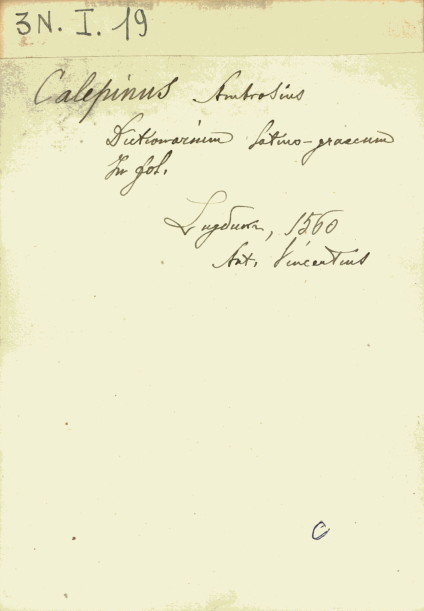 3N. I. 19
Calepinus Ambrosius
Dictionarium latino-graecum
In fol.
Lugduni, 1560
Ant. Vincentius
C